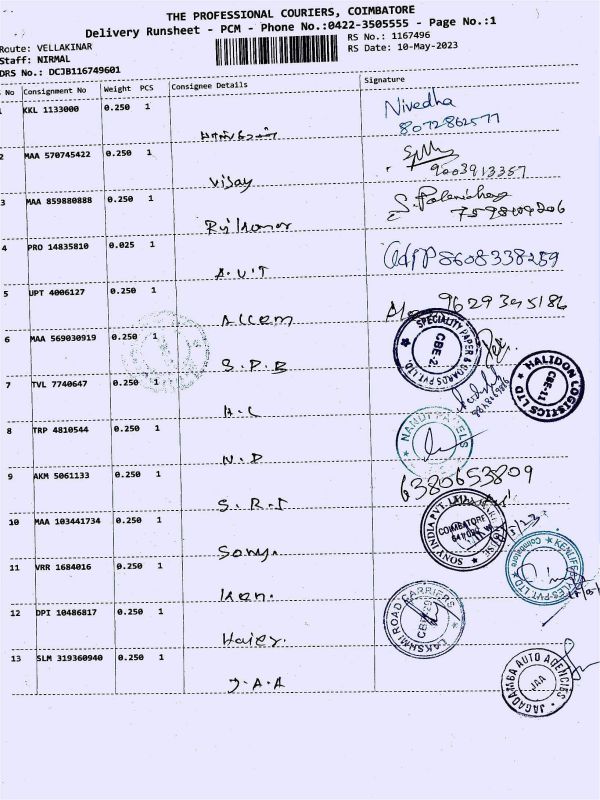 THE PROFESSIONAL COURIERS, COIMBATORE
Delivery Runsheet - PCM - Phone No.:0422-3505555 - Page No.:1
Route: VELLAKINAR RS No.: 1167496
Staff: NIRMAL RS Date: 10-May-2023
DRS No.: DCJB116749601
No Consignment No Weight PCS Consignee Details Signature
KKL 1133000 0.250 1 Nivedha
8072862577
2 MAA 570745422 0.250 1 9003913357
Vijay
3 MAA 859880888 0.250 1 7598109206
4 PRO 14835810 0.025 1 8608338259
A.V.T
5 UPT 4006127 0.250 1 9629345186
Accem
6 MAA 569030919 0.250 1 SPECIALITY PAPER & BOARDS PVT. LTD CBE-2
S.P.B
7 TVL 7740647 0.250 1 HALIDON LOGISTICS LTD CBE-11
H.L
8 TRP 4810544 0.250 1 NANDI PANELS
N.P
9 AKM 5061133 0.250 1 6380653809
S.R.I
10 MAA 103441734 0.250 1 SONY INDIA PVT. LTD. COIMBATORE
Sony.
11 VRR 1684016 0.250 1 KENLIFE Coimbatore
Ken.
12 DPI 10486817 0.250 1 LAKSHMI ROAD CARRIERS CBE
Haier.
13 SLM 319360940 0.250 1 JAGADAMBA AUTO AGENCIES JAA
J.A.A